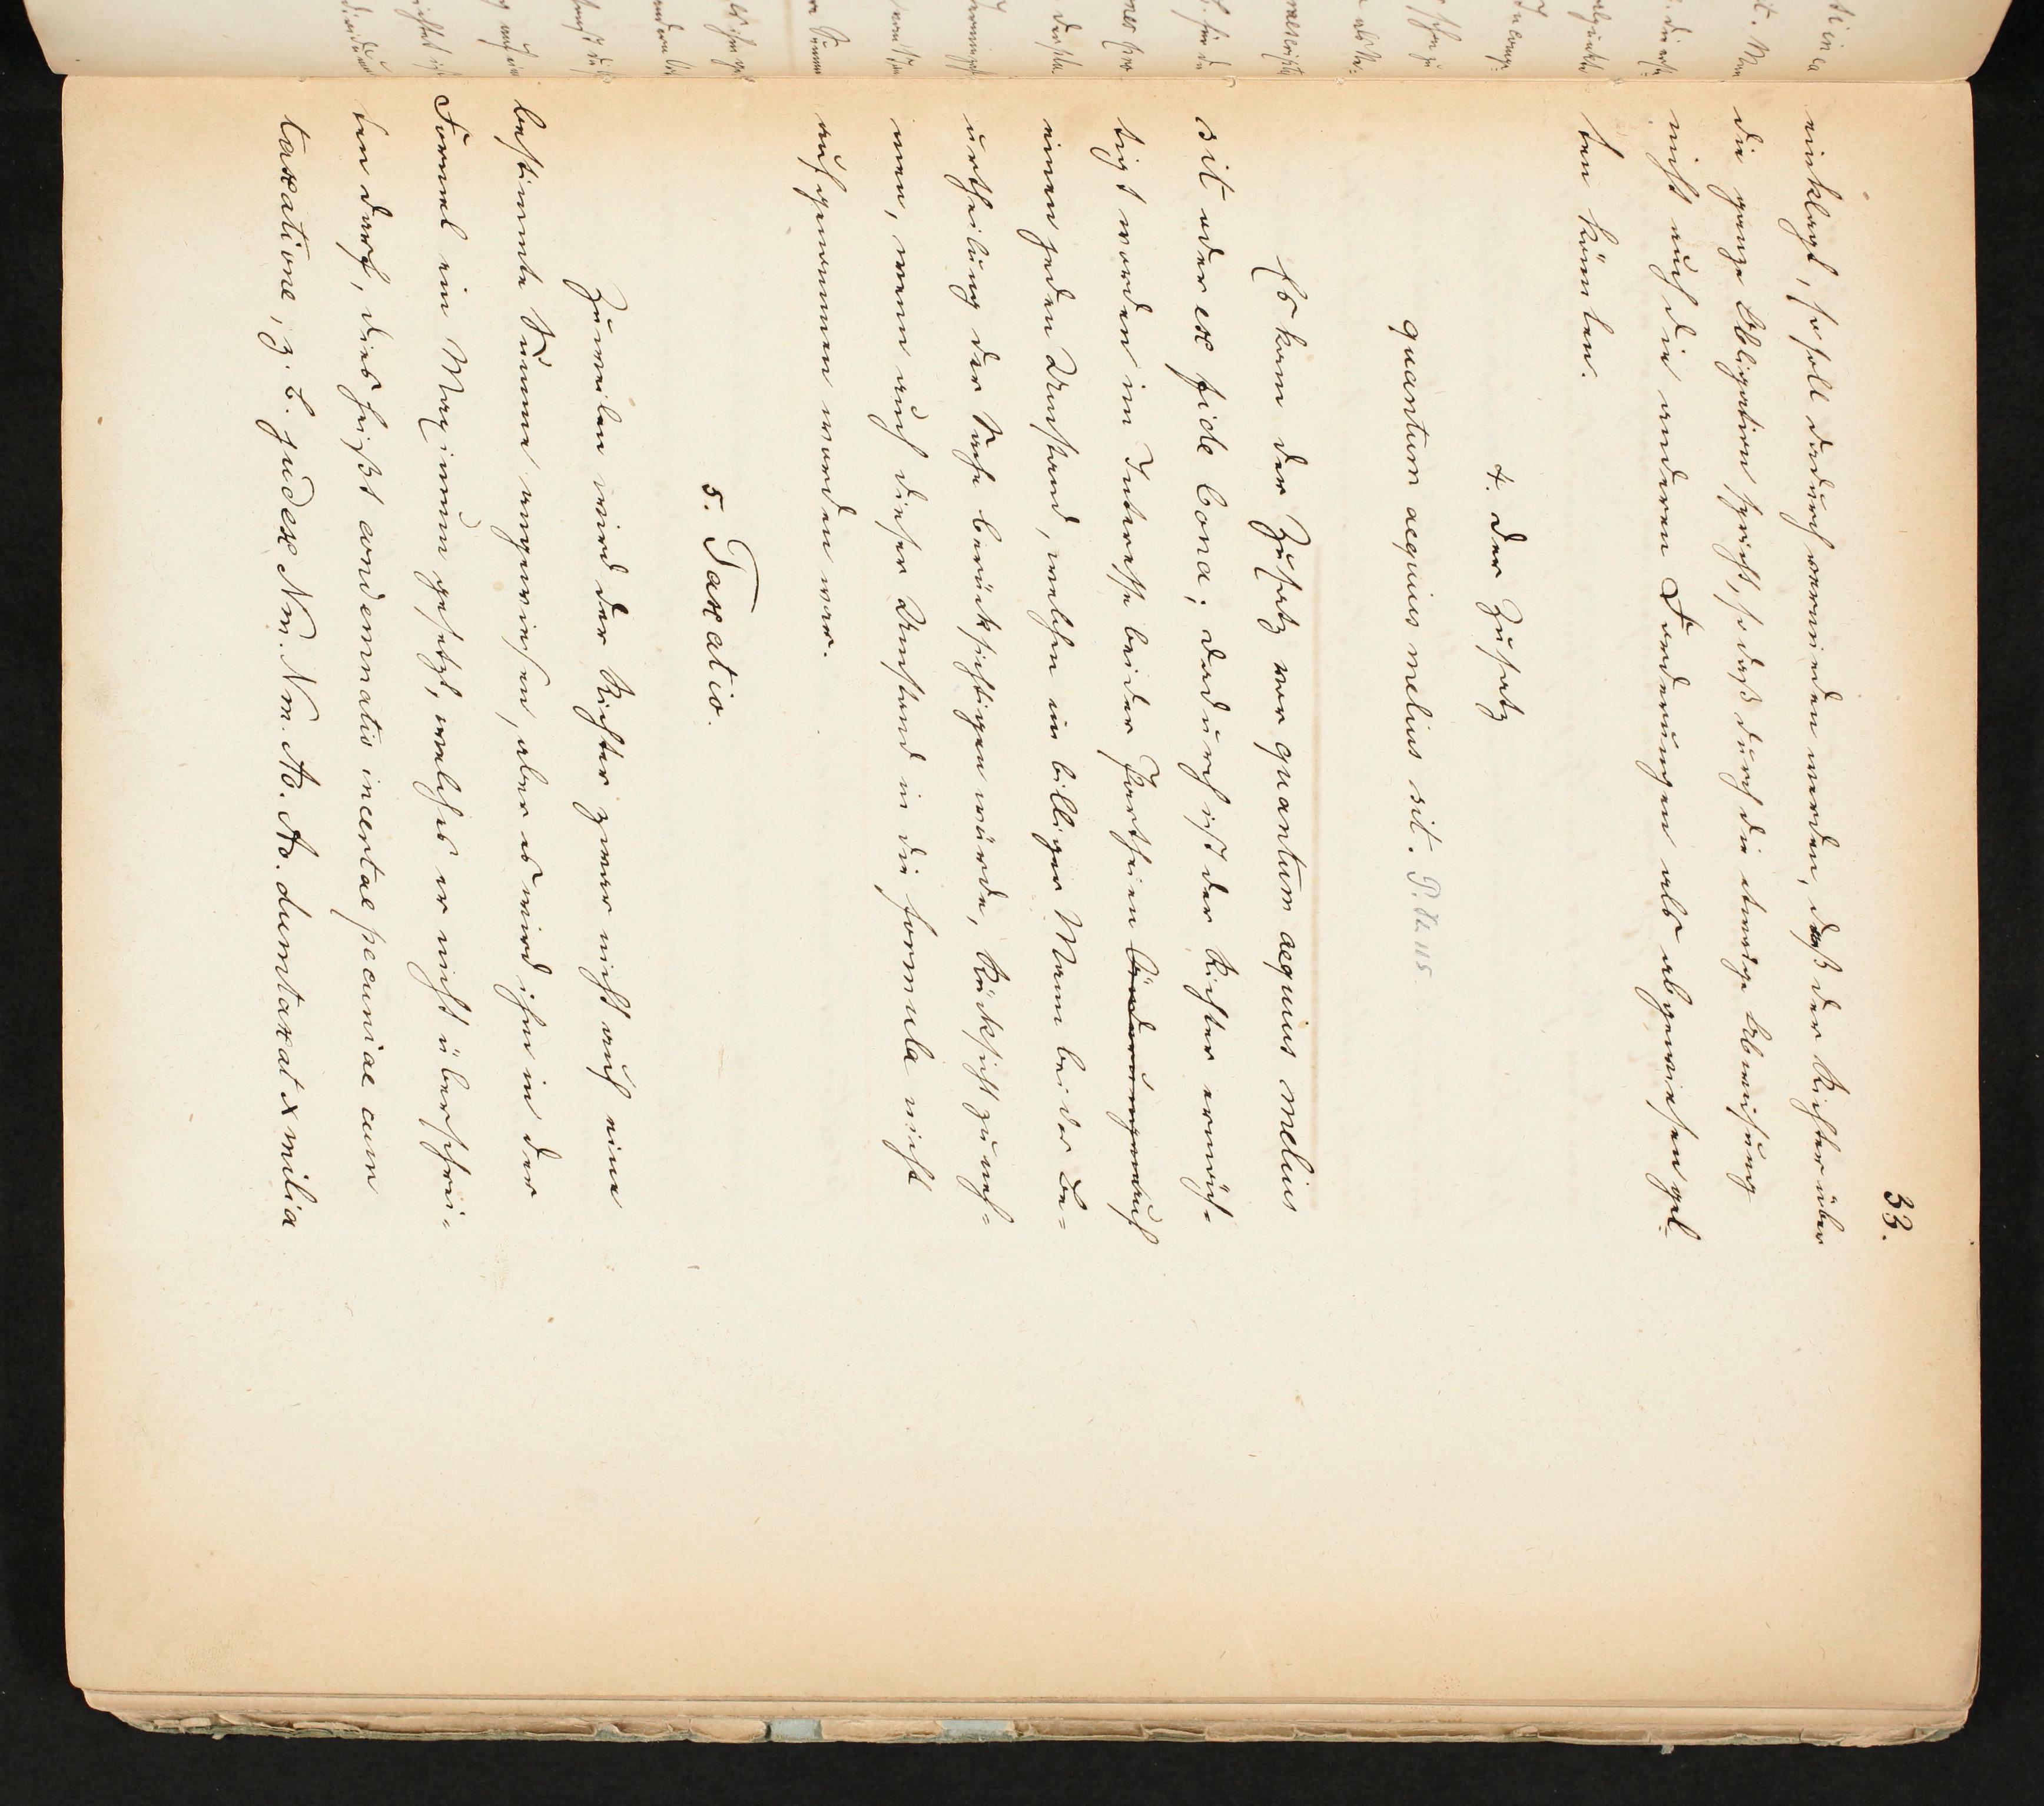 33.
einklagt, so soll dadurch vermieden werden, daß der Richter über
die ganze Obligation spricht, so daß durch die etwaige Abweisung
nicht auch die anderen Forderungen als abgewiesen gel-
ten könten.
4. Der Zusatz
quantum aequius melius sit.
Es kam der Zusatz vor quantum aequius melius
sit oder ex fide bona; dadurch ist der Richter ermäch-
tigt worden im Interesse beider Partheien auf
einen jeden Umstand, welchen ein billiger Mann bei der Be-
urtheilung der Sache berücksichtigen würde, Rücksicht zu neh-
men, wenn auch dieser Umstand in die formula nicht
aufgenommen worden war.
5. Taxatio.
Zuweilen wird der Richter zwar nicht auf eine
bestimmte Summe angewiesen, aber es wird ihm in der
Formel ein Maximum gesetzt, welches er nicht überschrei-
ten darf, dies heißt condemnatio incertae pecuniae cum
taxatione, z. B. judex Nm. Nm. Ao. Ao. dumtaxat X milia